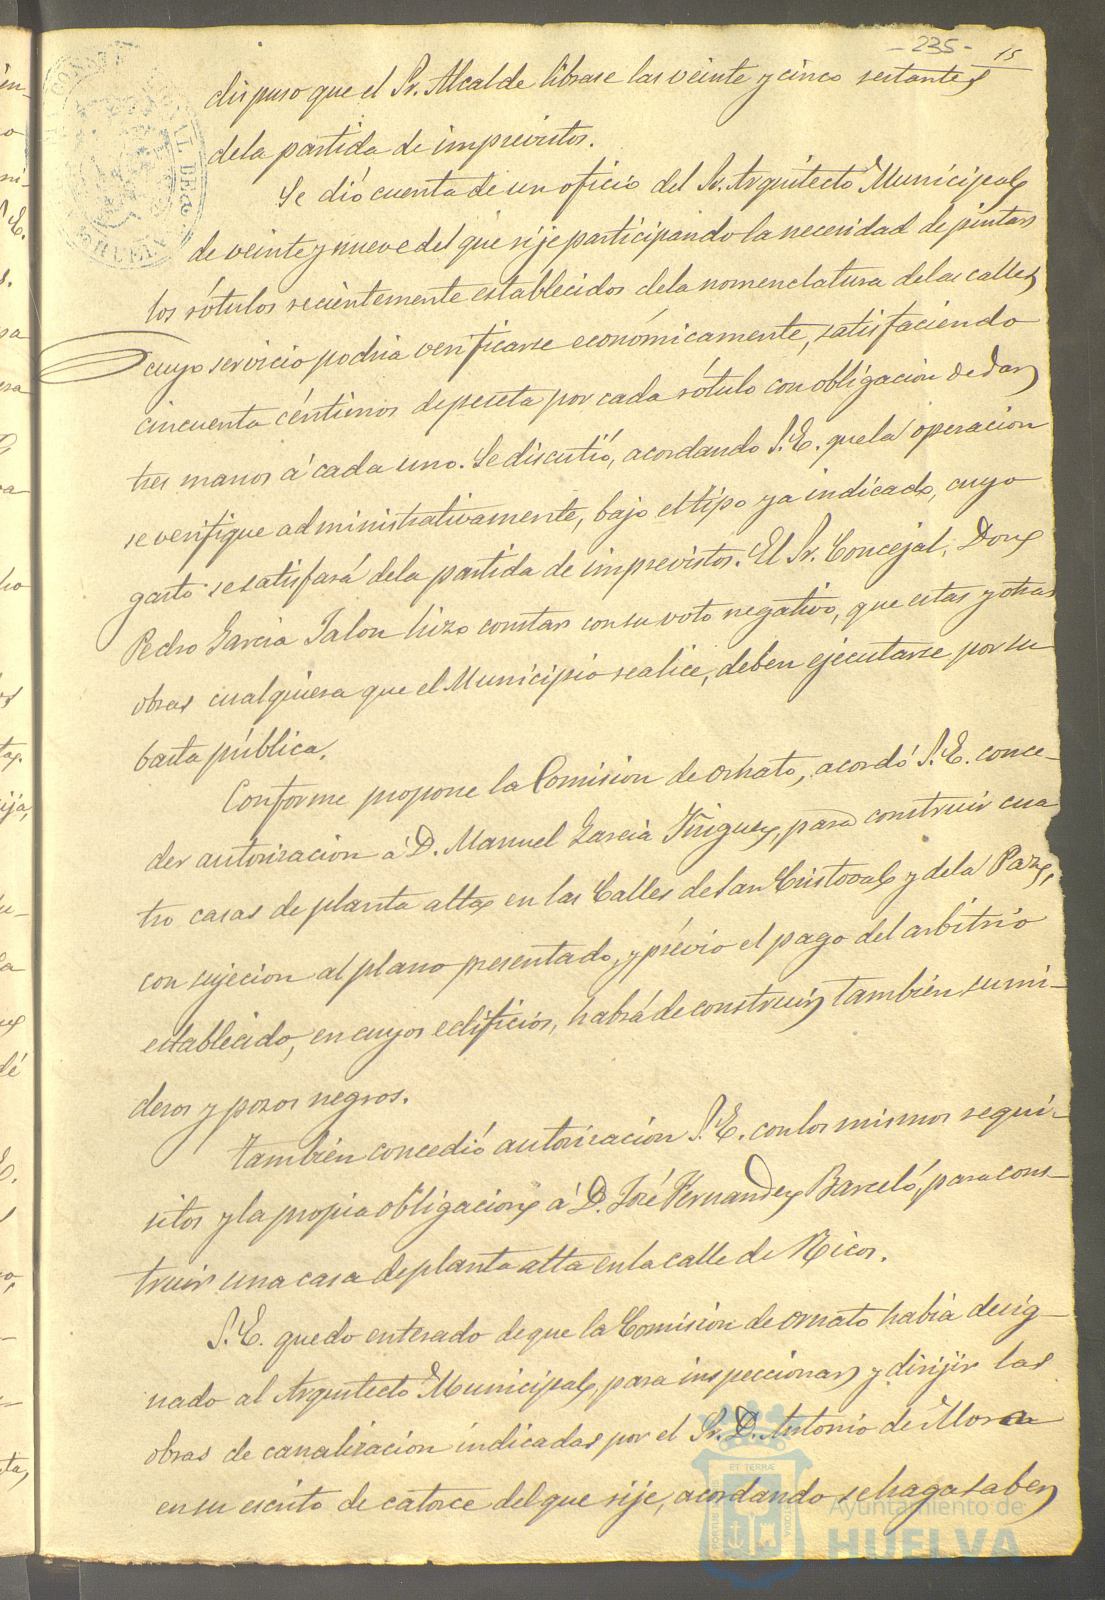 - 235 -
15
dispuso que el Sr. Alcalde librase las veinte y cinco restantes
dela partida de imprevistos.
Se dió cuenta de un oficio del Sr. Arquitecto Municipal
de veinte y nueve del que rije participando la necesidad de pintar
los rótulos recientemente establecidos dela nomenclatura delas calles
cuyo servicio podria verificarse económicamente, satisfaciendo
cincuenta céntimos de peseta por cada rótulo con obligacion de dar
tres manos á cada uno. Se discutió, acordando S.E. que la operacion
se verifique administrativamente, bajo el tipo ya indicado, cuyo
gasto se satisfará dela partida de imprevistos. El Sr. Concejal, Don
Pedro Garcia Jalon hizo constar con su voto negativo, que estas y otras
obras cualquiera que el Municipio realice, deben ejecutarse por su
basta pública.
Conforme propone la Comision de ornato, acordó S.E. conce-
der autorizacion á D. Manuel Garcia Iñiguez, para construir cua
tro casas de planta alta en las Calles de San Cristoval y dela Paz,
con sujecion al plano presentado, y prévio el pago del arbitrio
establecido, en cuyos edificios, habrá de construir también sumi-
deros y pozos negros.
También concedió autorizacion S.E. con los mismos requi-
sitos y la propia obligacion á D. José Fernandez Barceló, para cons-
truir una casa de planta alta en la calle de Ricos.
S.E. quedo enterado de que la Comision de ornato habia desig-
nado al Arquitecto Municipal, para inspeccionar y dirijir las
obras de canalizacion indicadas por el Sr. D. Antonio de Mora
en su escrito de catorce del que rije, acordando se haga saber
Ayuntamiento de
HUELVA